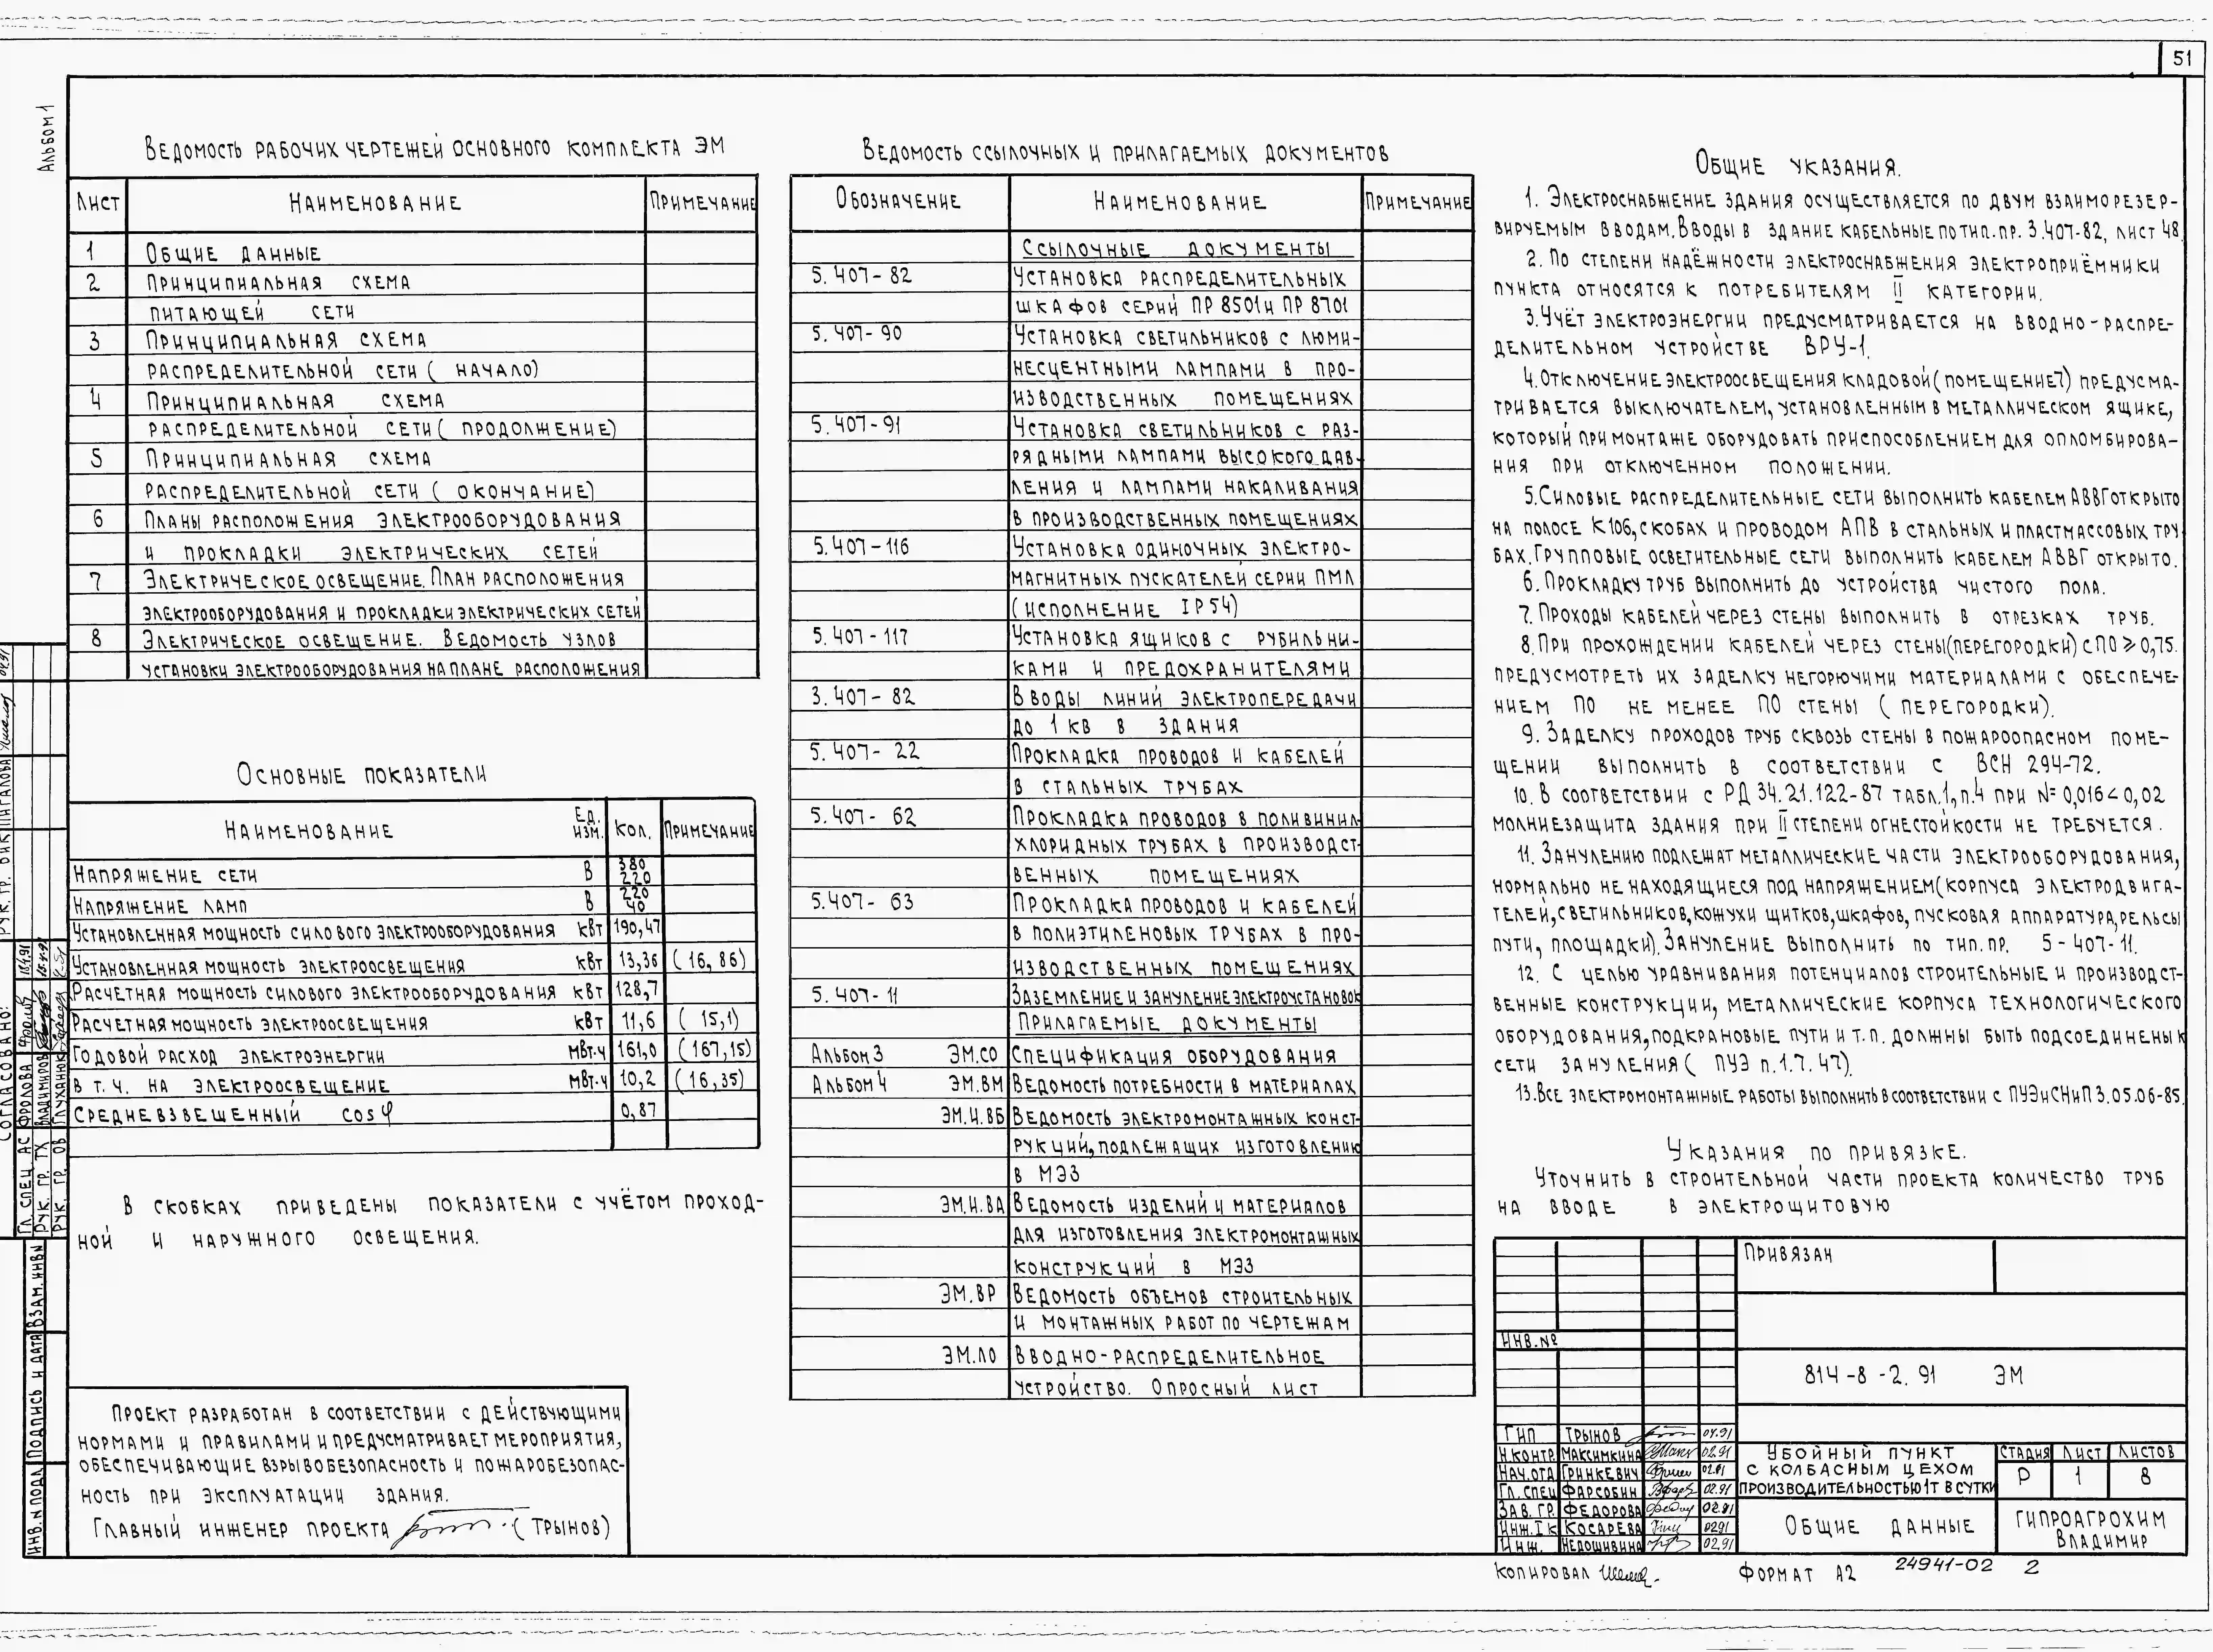 51
Альбом 1
Ведомость рабочих чертежей основного комплекта ЭМ
Лист Наименование Примечание
1 Общие данные
2 Принципиальная схема
питающей сети
3 Принципиальная схема
распределительной сети ( начало)
4 Принципиальная схема
распределительной сети ( продолжение)
5 Принципиальная схема
распределительной сети ( окончание)
6 Планы расположения электрооборудования
и прокладки электрических сетей
7 Электрическое освещение. План расположения
электрооборудования и прокладки электрических сетей
8 Электрическое освещение. Ведомость узлов
установки электрооборудования на плане расположения
Основные показатели
Наименование Ед. изм. Кол. Примечание
Напряжение сети В 380 220
Напряжение ламп В 220 40
Установленная мощность силового электрооборудования кВт 190,47
Установленная мощность электроосвещения кВт 13,36 (16,86)
Расчетная мощность силового электрооборудования кВт 128,7
Расчетная мощность электроосвещения кВт 11,6 ( 15,1)
Годовой расход электроэнергии МВт.ч 161,0 (167,15)
в т.ч. на электроосвещение МВт.ч 10,2 (16,35)
Средневзвешенный cos φ 0,87
В скобках приведены показатели с учётом проход-
ной и наружного освещения.
Проект разработан в соответствии с действующими
нормами и правилами и предусматривает мероприятия,
обеспечивающие взрывобезопасность и пожаробезопас-
ность при эксплуатации здания.
Главный инженер проекта (Трынов)
Ведомость ссылочных и прилагаемых документов
Обозначение Наименование Примечание
Ссылочные документы
5.407-82 Установка распределительных
шкафов серий ПР 8501 и ПР 8701
5.407-90 Установка светильников с люми-
несцентными лампами в про-
изводственных помещениях
5.407-91 Установка светильников с раз-
рядными лампами высокого дав-
ления и лампами накаливания
в производственных помещениях
5.407-116 Установка одиночных электро-
магнитных пускателей серии ПМЛ
(исполнение IP54)
5.407-117 Установка ящиков с рубильни-
ками и предохранителями
3.407-82 Вводы линий электропередачи
до 1 кВ в здания
5.407-22 Прокладка проводов и кабелей
в стальных трубах
5.407-62 Прокладка проводов в поливинил
хлоридных трубах в производст-
венных помещениях
5.407-63 Прокладка проводов и кабелей
в полиэтиленовых трубах в про-
изводственных помещениях
5.407-11 Заземление и зануление электроустановок
Прилагаемые документы
Альбом 3 ЭМ.СО Спецификация оборудования
Альбом 4 ЭМ.ВМ Ведомость потребности в материалах
ЭМ.И.ВБ Ведомость электромонтажных конст-
рукций, подлежащих изготовлению
в МЭЗ
ЭМ.И.ВА Ведомость изделий и материалов
для изготовления электромонтажных
конструкций в МЭЗ
ЭМ.ВР Ведомость объемов строительных
и монтажных работ по чертежам
ЭМ.ЛО Вводно-распределительное
устройство. Опросный лист
Общие указания.
1. Электроснабжение здания осуществляется по двум взаиморезер-
вируемым вводам. Вводы в здание кабельные по тип. пр. 3.407-82, лист 48.
2. По степени надёжности электроснабжения электроприёмники
пункта относятся к потребителям II категории.
3. Учёт электроэнергии предусматривается на вводно-распре-
делительном устройстве ВРУ-1.
4. Отключение электроосвещения кладовой (помещение 7) предусма-
тривается выключателем, установленным в металлическом ящике,
который при монтаже оборудовать приспособлением для опломбирова-
ния при отключенном положении.
5. Силовые распределительные сети выполнить кабелем АВВГ открыто
на полосе К106, скобах и проводом АПВ в стальных и пластмассовых тру
бах. Групповые осветительные сети выполнить кабелем АВВГ открыто.
6. Прокладку труб выполнить до устройства чистого пола.
7. Проходы кабелей через стены выполнить в отрезках труб.
8. При прохождении кабелей через стены (перегородки) с ПО ≥ 0,75.
предусмотреть их заделку негорючими материалами с обеспече-
нием ПО не менее ПО стены ( перегородки).
9. Заделку проходов труб сквозь стены в пожароопасном поме-
щении выполнить в соответствии с ВСН 294-72.
10. В соответствии с РД 34.21.122-87 табл.1, п.4 при N= 0,016 < 0,02
молниезащита здания при II степени огнестойкости не требуется.
11. Занулению подлежат металлические части электрооборудования,
нормально не находящиеся под напряжением (корпуса электродвига-
телей, светильников, кожухи щитков, шкафов, пусковая аппаратура, рельсы
пути, площадки). Зануление выполнить по тип. пр. 5-407-11.
12. С целью уравнивания потенциалов строительные и производст-
венные конструкции, металлические корпуса технологического
оборудования, подкрановые пути и т.п. должны быть подсоединены к
сети зануления ( ПУЭ п.1.7.47).
13. Все электромонтажные работы выполнить в соответствии с ПУЭ и СНиП 3.05.06-85.
Указания по привязке.
Уточнить в строительной части проекта количество труб
на вводе в электрощитовую
Привязан
Инв.№
814-8-2.91 ЭМ
ГИП Трынов 04.91
Н.контр Максимкина 02.91
Нач.отд Гринкевич 02.91
Гл.спец Фарсобин 02.91
Зав.гр. Федорова 02.91
Инж.I к Косарева 0291
Инж. Недошивина 02.91
Убойный пункт
с колбасным цехом
производительностью 1т в сутки
Стадия Лист Листов
Р 1 8
Общие данные
ГИПРОАГРОХИМ
Владимир
Копировал
Формат А2
24941-02 2
Согласовано:
Гл. спец. АС Фролова
Рук. гр. ТХ Владимиров
Рук. гр. ОВ Глуханюк
Рук. гр. ВиК Пигалова
Инв.№ подл Подпись и дата Взам.инв№